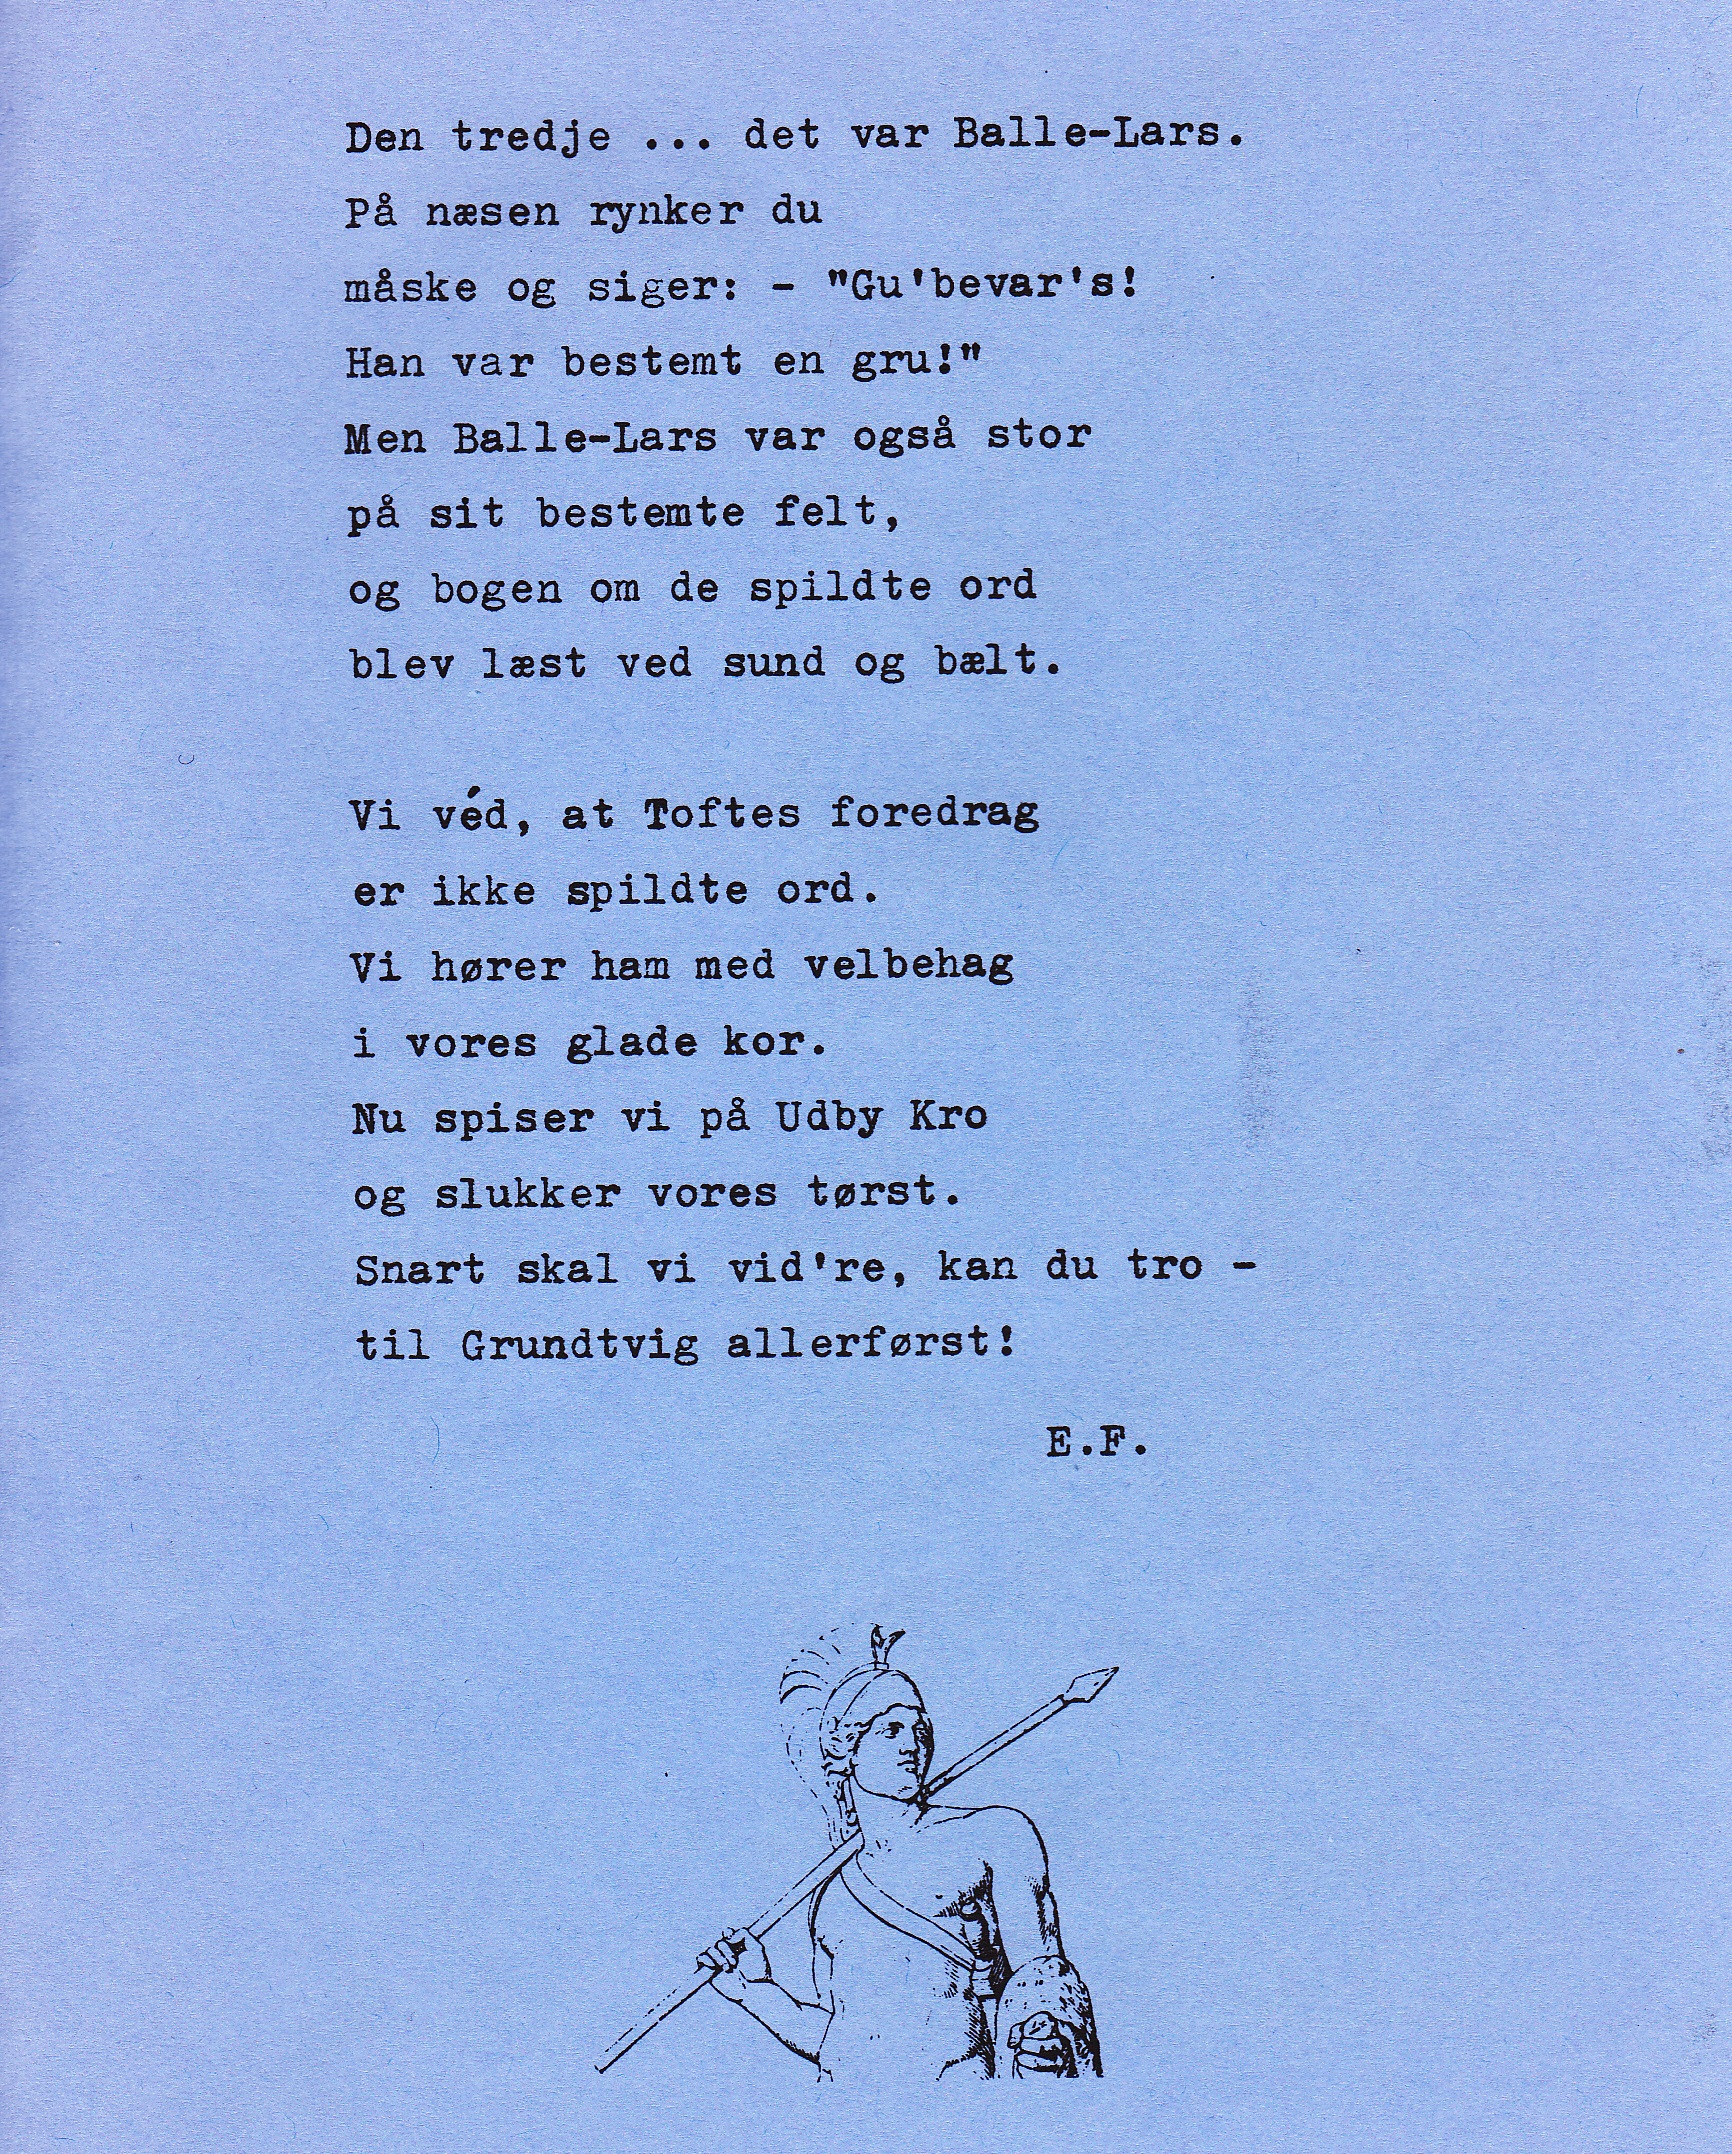 Den tredje ... det var Balle-Lars.
På næsen rynker du
måske og siger: - "Gu'bevar's!
Han var bestemt en gru!"
Men Balle-Lars var også stor
på sit bestemte felt,
og bogen om de spildte ord
blev læst ved sund og bælt.
Vi véd, at Toftes foredrag
er ikke spildte ord.
Vi hører ham med velbehag
i vores glade kor.
Nu spiser vi på Udby Kro
og slukker vores tørst.
Snart skal vi vid're, kan du tro -
til Grundtvig allerførst!
E.F.